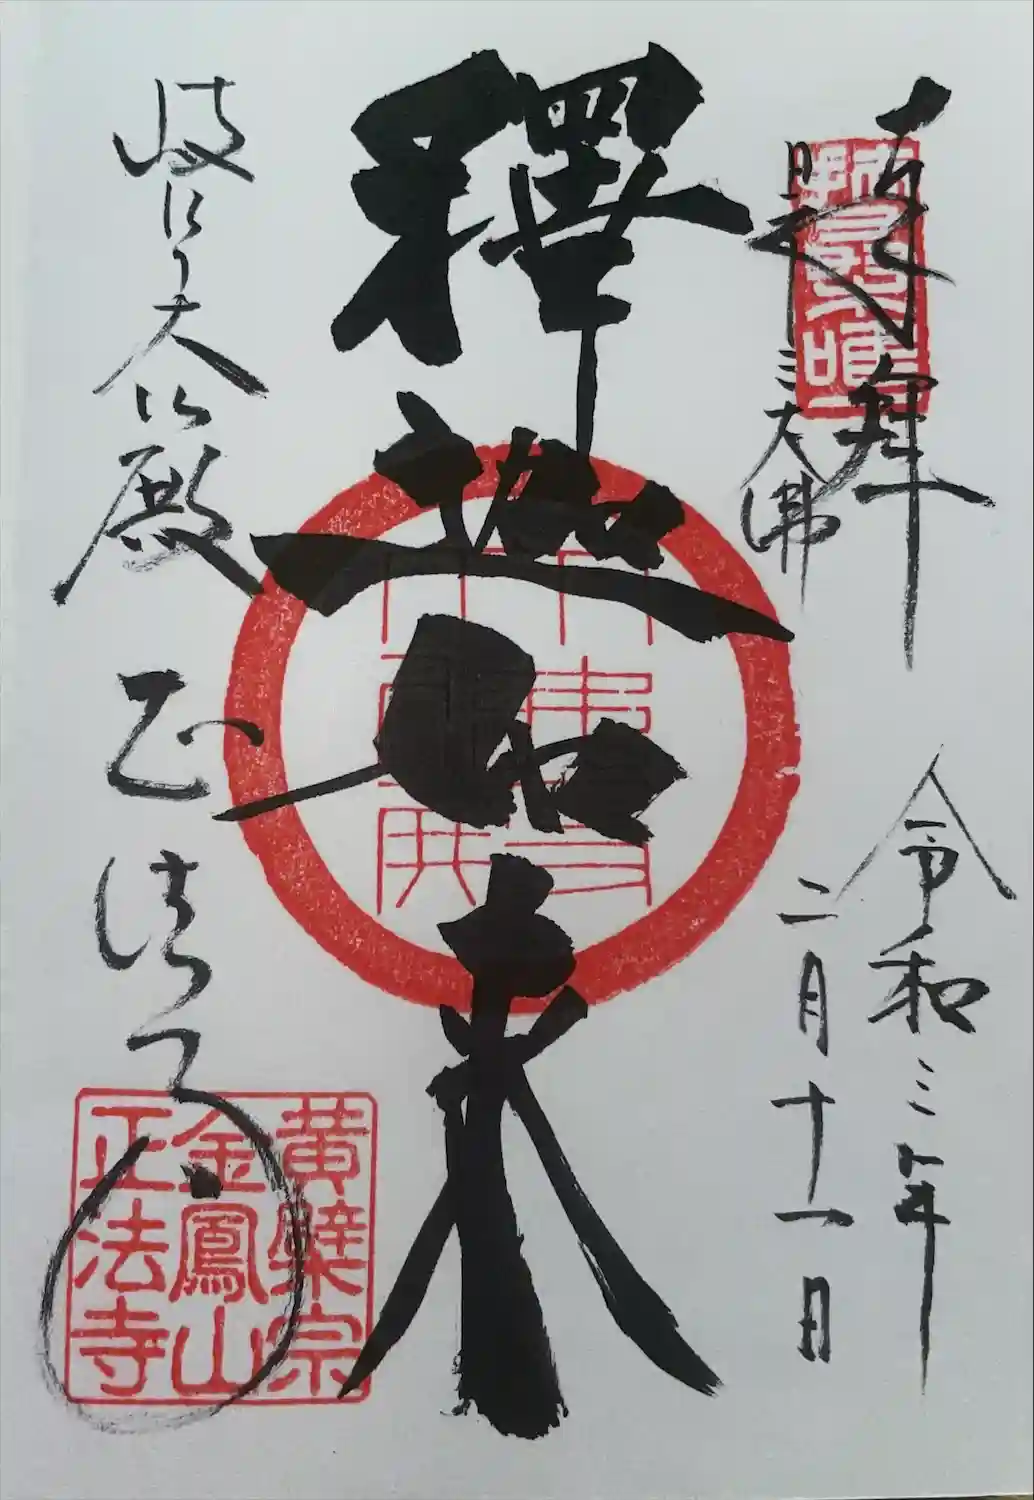 奉拜
日本三大佛
令和三年
二月十一日
釋迦如来
岐阜大仏殿
正法寺
黄檗宗
金鳳山
正法寺